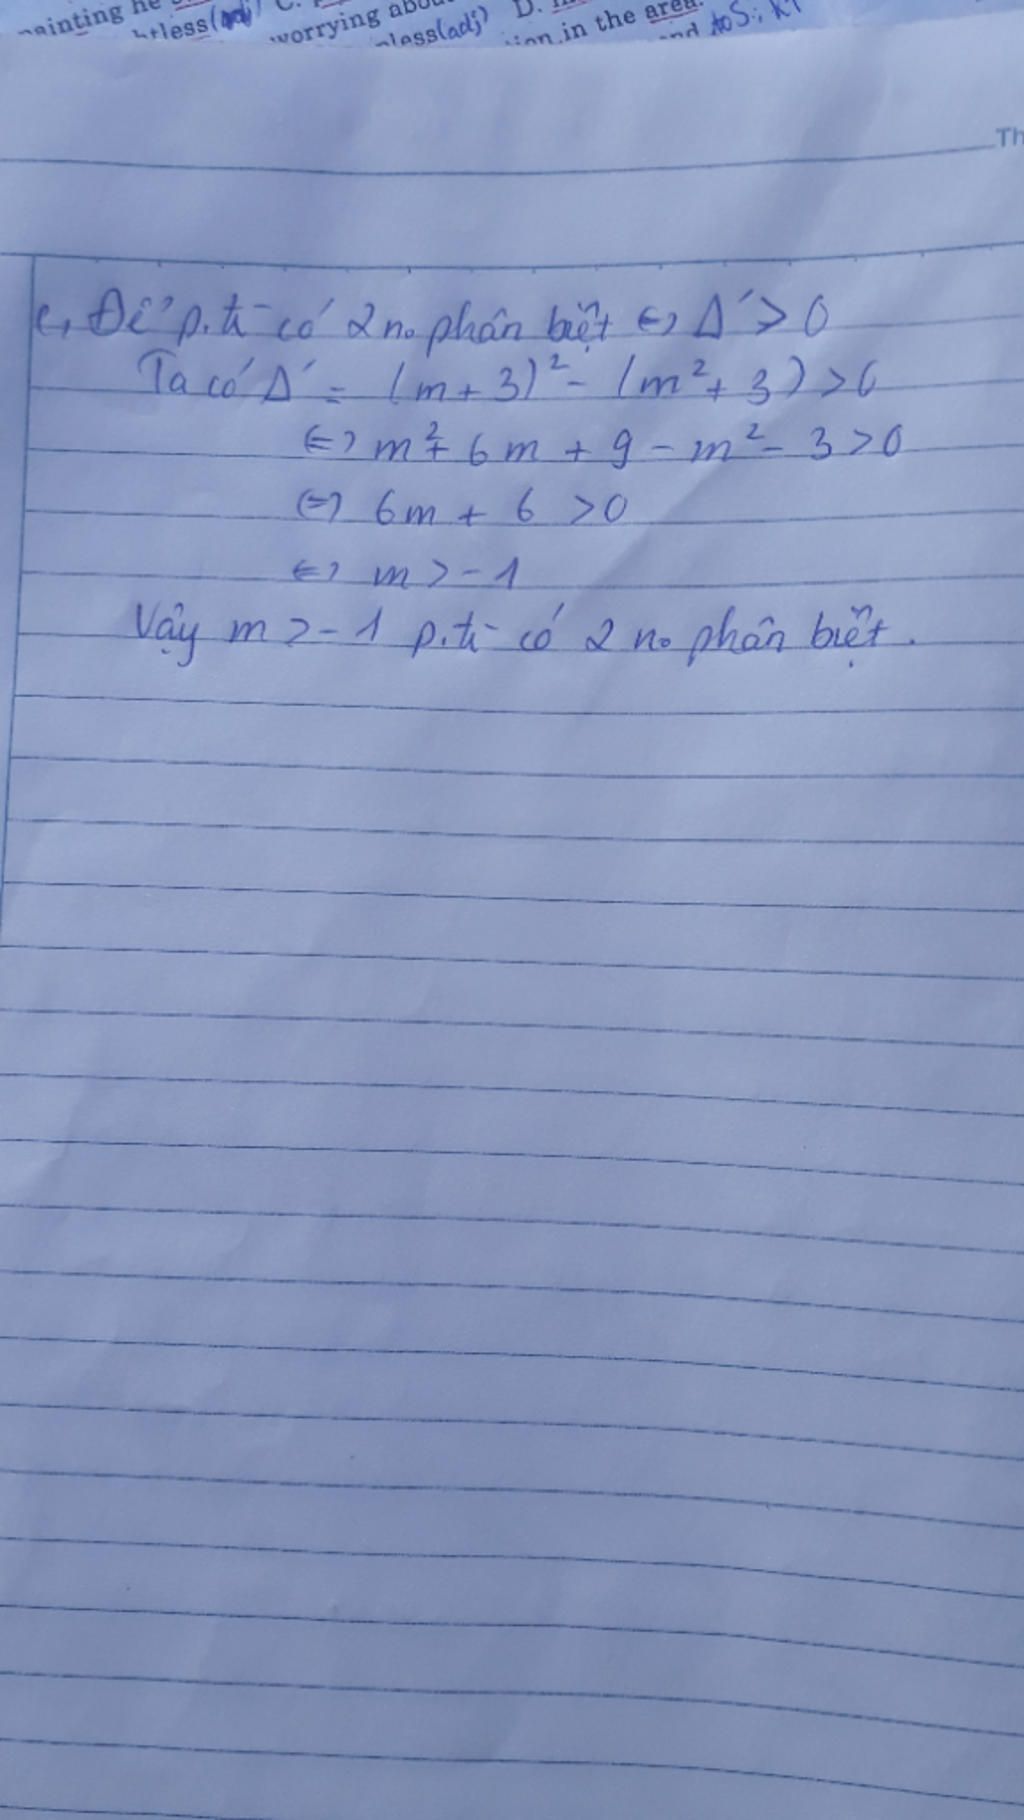 painting he
C.
worrying abou
D.
(adj)
less(adj)
in the area.
and to S.; KT
Th
c, Để p.tr có 2 no phân biệt <=> Δ' > 0
Ta có Δ' = (m + 3)² - (m² + 3) > 0
<=> m² + 6m + 9 - m² - 3 > 0
<=> 6m + 6 > 0
<=> m > -1
Vậy m > -1 p.tr có 2 no phân biệt.